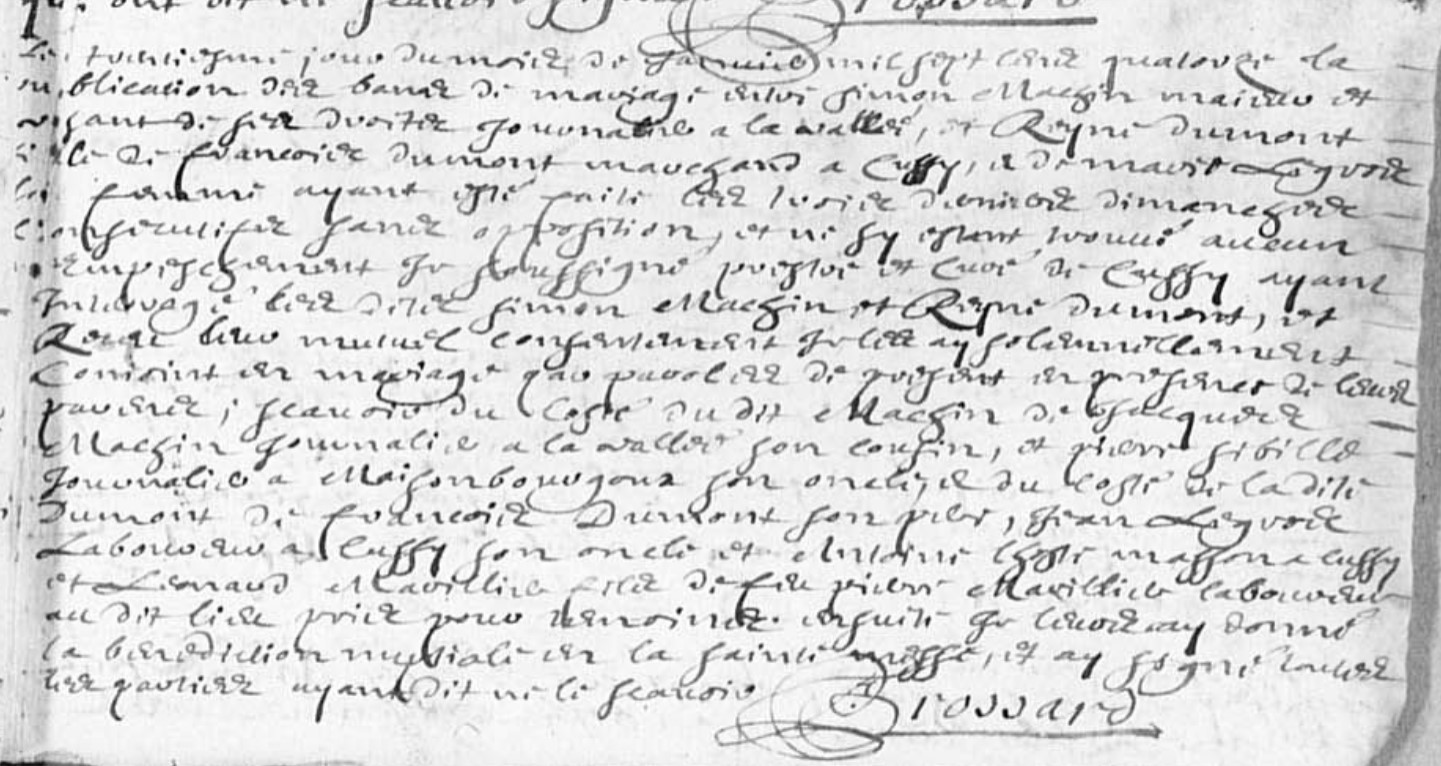 qui ont dit ne scavoir signer Brossard
Le troisiesme jour du mois de janvier mil sept cens quatorze la
publication des bans de mariage entre Simon Machin majeur et
usant de ses droites journalier a la vallée, et Reyne Dumont
fille de francois Dumont marchand a Cussy, et de marie Legros
sa femme ayant esté faite les trois derniers dimanches
consecutifes sans opposition, et ne sy estant trouvé aucun
empeschement Je soussigné prestre et Curé de Cussy ayant
Interrogé les dites Simon Machin et Reyne Dumont, et
Receu leur mutuel consentement Je les ay solemnellement
Conioint en mariage par paroles de present en presence de leurs
parens; scavoir du costé du dit Machin de Jacques
Machin journalier a la vallée son cousin, et pierre sibille
Journalier a Maisonbourgoux son oncle, et du costé de la dite
Dumont de francois Dumont son pere, Jean Legros
Laboureur a Cussy son oncle et Antoine masson a Cussy
et Leonard Mavillier fils de feu pierre Mavillier laboureur
au dit lieu pries pour temoins. ensuite Je leurs ay donné
la benediction nuptiale en la sainte messe, et ay signé toutes
les parties ayant dit ne le scavoir Brossard